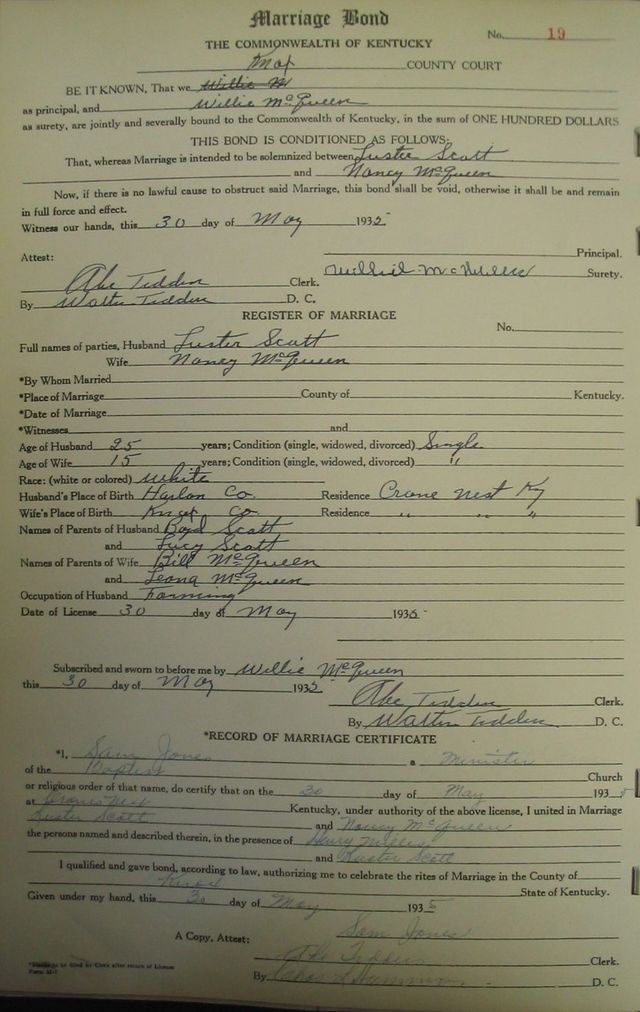 Marriage Bond
No. 19
THE COMMONWEALTH OF KENTUCKY
Knox COUNTY COURT
BE IT KNOWN, That we Willie M
as principal, and Willie McQueen
as surety, are jointly and severally bound to the Commonwealth of Kentucky, in the sum of ONE HUNDRED DOLLARS
THIS BOND IS CONDITIONED AS FOLLOWS:
That, whereas Marriage is intended to be solemnized between Luster Scott
and Nancy McQueen
Now, if there is no lawful cause to obstruct said Marriage, this bond shall be void, otherwise it shall be and remain
in full force and effect.
Witness our hands, this 30 day of May 1935
Principal.
Attest:
Abe Tedden Clerk. Surety.
By Walter Tedden D. C.
REGISTER OF MARRIAGE
No.
Full names of parties, Husband Luster Scott
Wife Nancy McQueen
*By Whom Married
*Place of Marriage County of Kentucky.
*Date of Marriage
*Witnesses and
Age of Husband 25 years; Condition (single, widowed, divorced) Single
Age of Wife 15 years; Condition (single, widowed, divorced) "
Race: (white or colored) White
Husband's Place of Birth Harlan Co. Residence Crane Nest Ky
Wife's Place of Birth Knox Co. Residence " " "
Names of Parents of Husband Boyd Scott
and Lucy Scott
Names of Parents of Wife Bill McQueen
and Leona McQueen
Occupation of Husband Farming
Date of License 30 day of May 1935
Subscribed and sworn to before me by Willie McQueen
this 30 day of May 1935
Abe Tedden Clerk.
By Walter Tedden D. C.
*RECORD OF MARRIAGE CERTIFICATE
*I, Sam Jones a Minister
of the Baptist Church
or religious order of that name, do certify that on the 30 day of May 1935
at Kentucky, under authority of the above license, I united in Marriage
Luster Scott and Nancy McQueen
the persons named and described therein, in the presence of Henry
and Luster Scott
I qualified and gave bond, according to law, authorizing me to celebrate the rites of Marriage in the County of
Knox State of Kentucky.
Given under my hand, this 30 day of May 1935
Sam Jones
A Copy, Attest:
Abe Tedden Clerk.
By D. C.
*Marriage be filled by Clerk after return of License